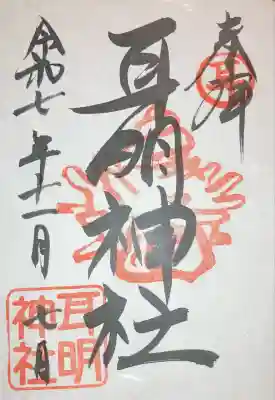 奉拝
耳明神社
令和七年十一月七日
耳明神社